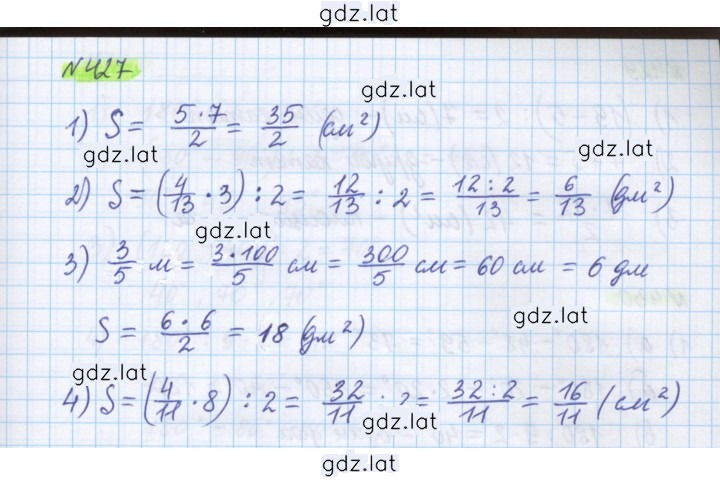 gdz.lat
N 427
gdz.lat
1) S = 5·7/2 = 35/2 (см²)
gdz.lat
gdz.lat
2) S = (4/13 · 3) : 2 = 12/13 : 2 = 12:2/13 = 6/13 (дм²)
gdz.lat
3) 3/5 м = 3·100/5 см = 300/5 см = 60 см = 6 дм
gdz.lat
S = 6·6/2 = 18 (дм²)
gdz.lat
4) S = (4/11 · 8) : 2 = 32/11 · 2 = 32:2/11 = 16/11 (см²)
gdz.lat
gdz.lat